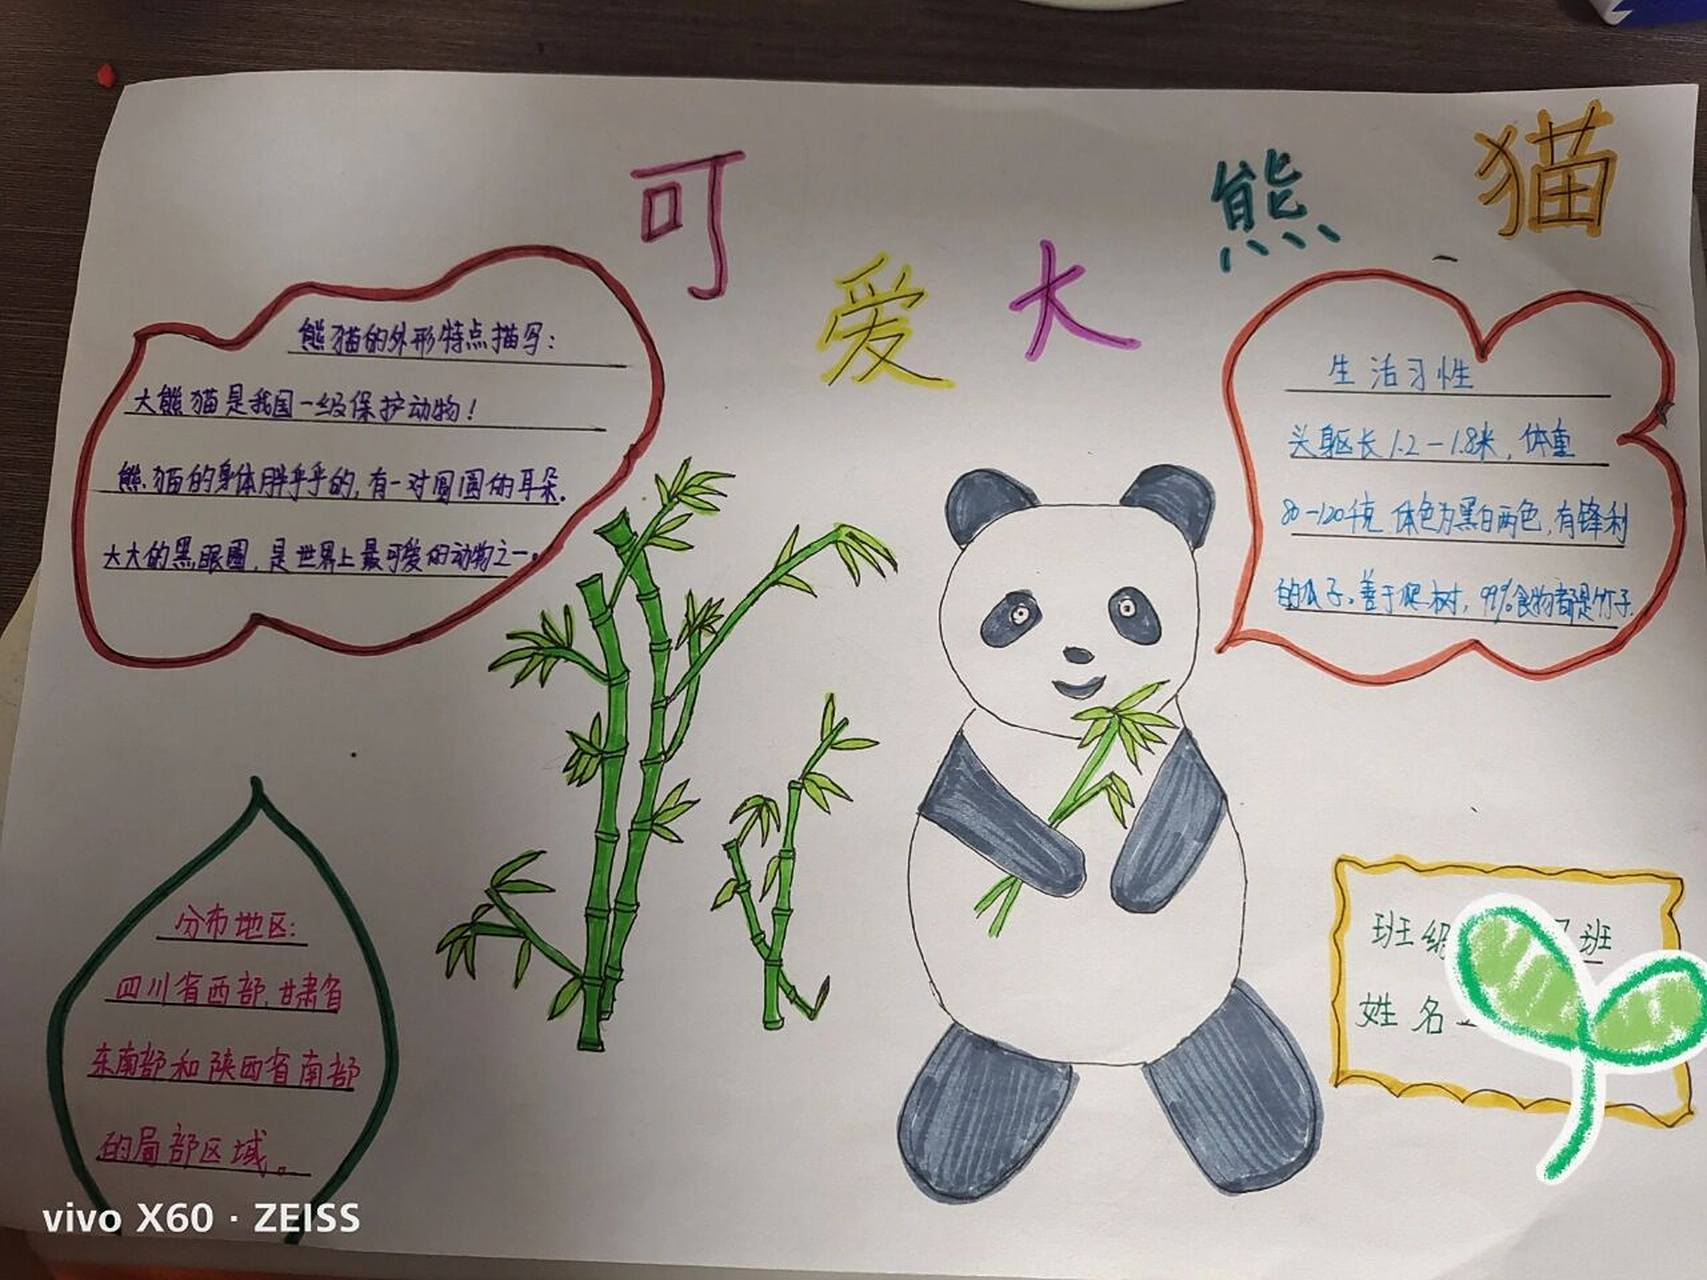 可爱大熊猫
熊猫的外形特点描写：
大熊猫是我国一级保护动物！
熊猫的身体胖乎乎的，有一对圆圆的耳朵.
大大的黑眼圈，是世界上最可爱的动物之一。
生活习性
头躯长1.2－1.8米，体重
80－120千克 体色为黑白两色，有锋利
的爪子。善于爬树，99%食物都是竹子.
分布地区：
四川省西部，甘肃省
东南部和陕西省南部
的局部区域。
班级 班
姓名
vivo X60 · ZEISS